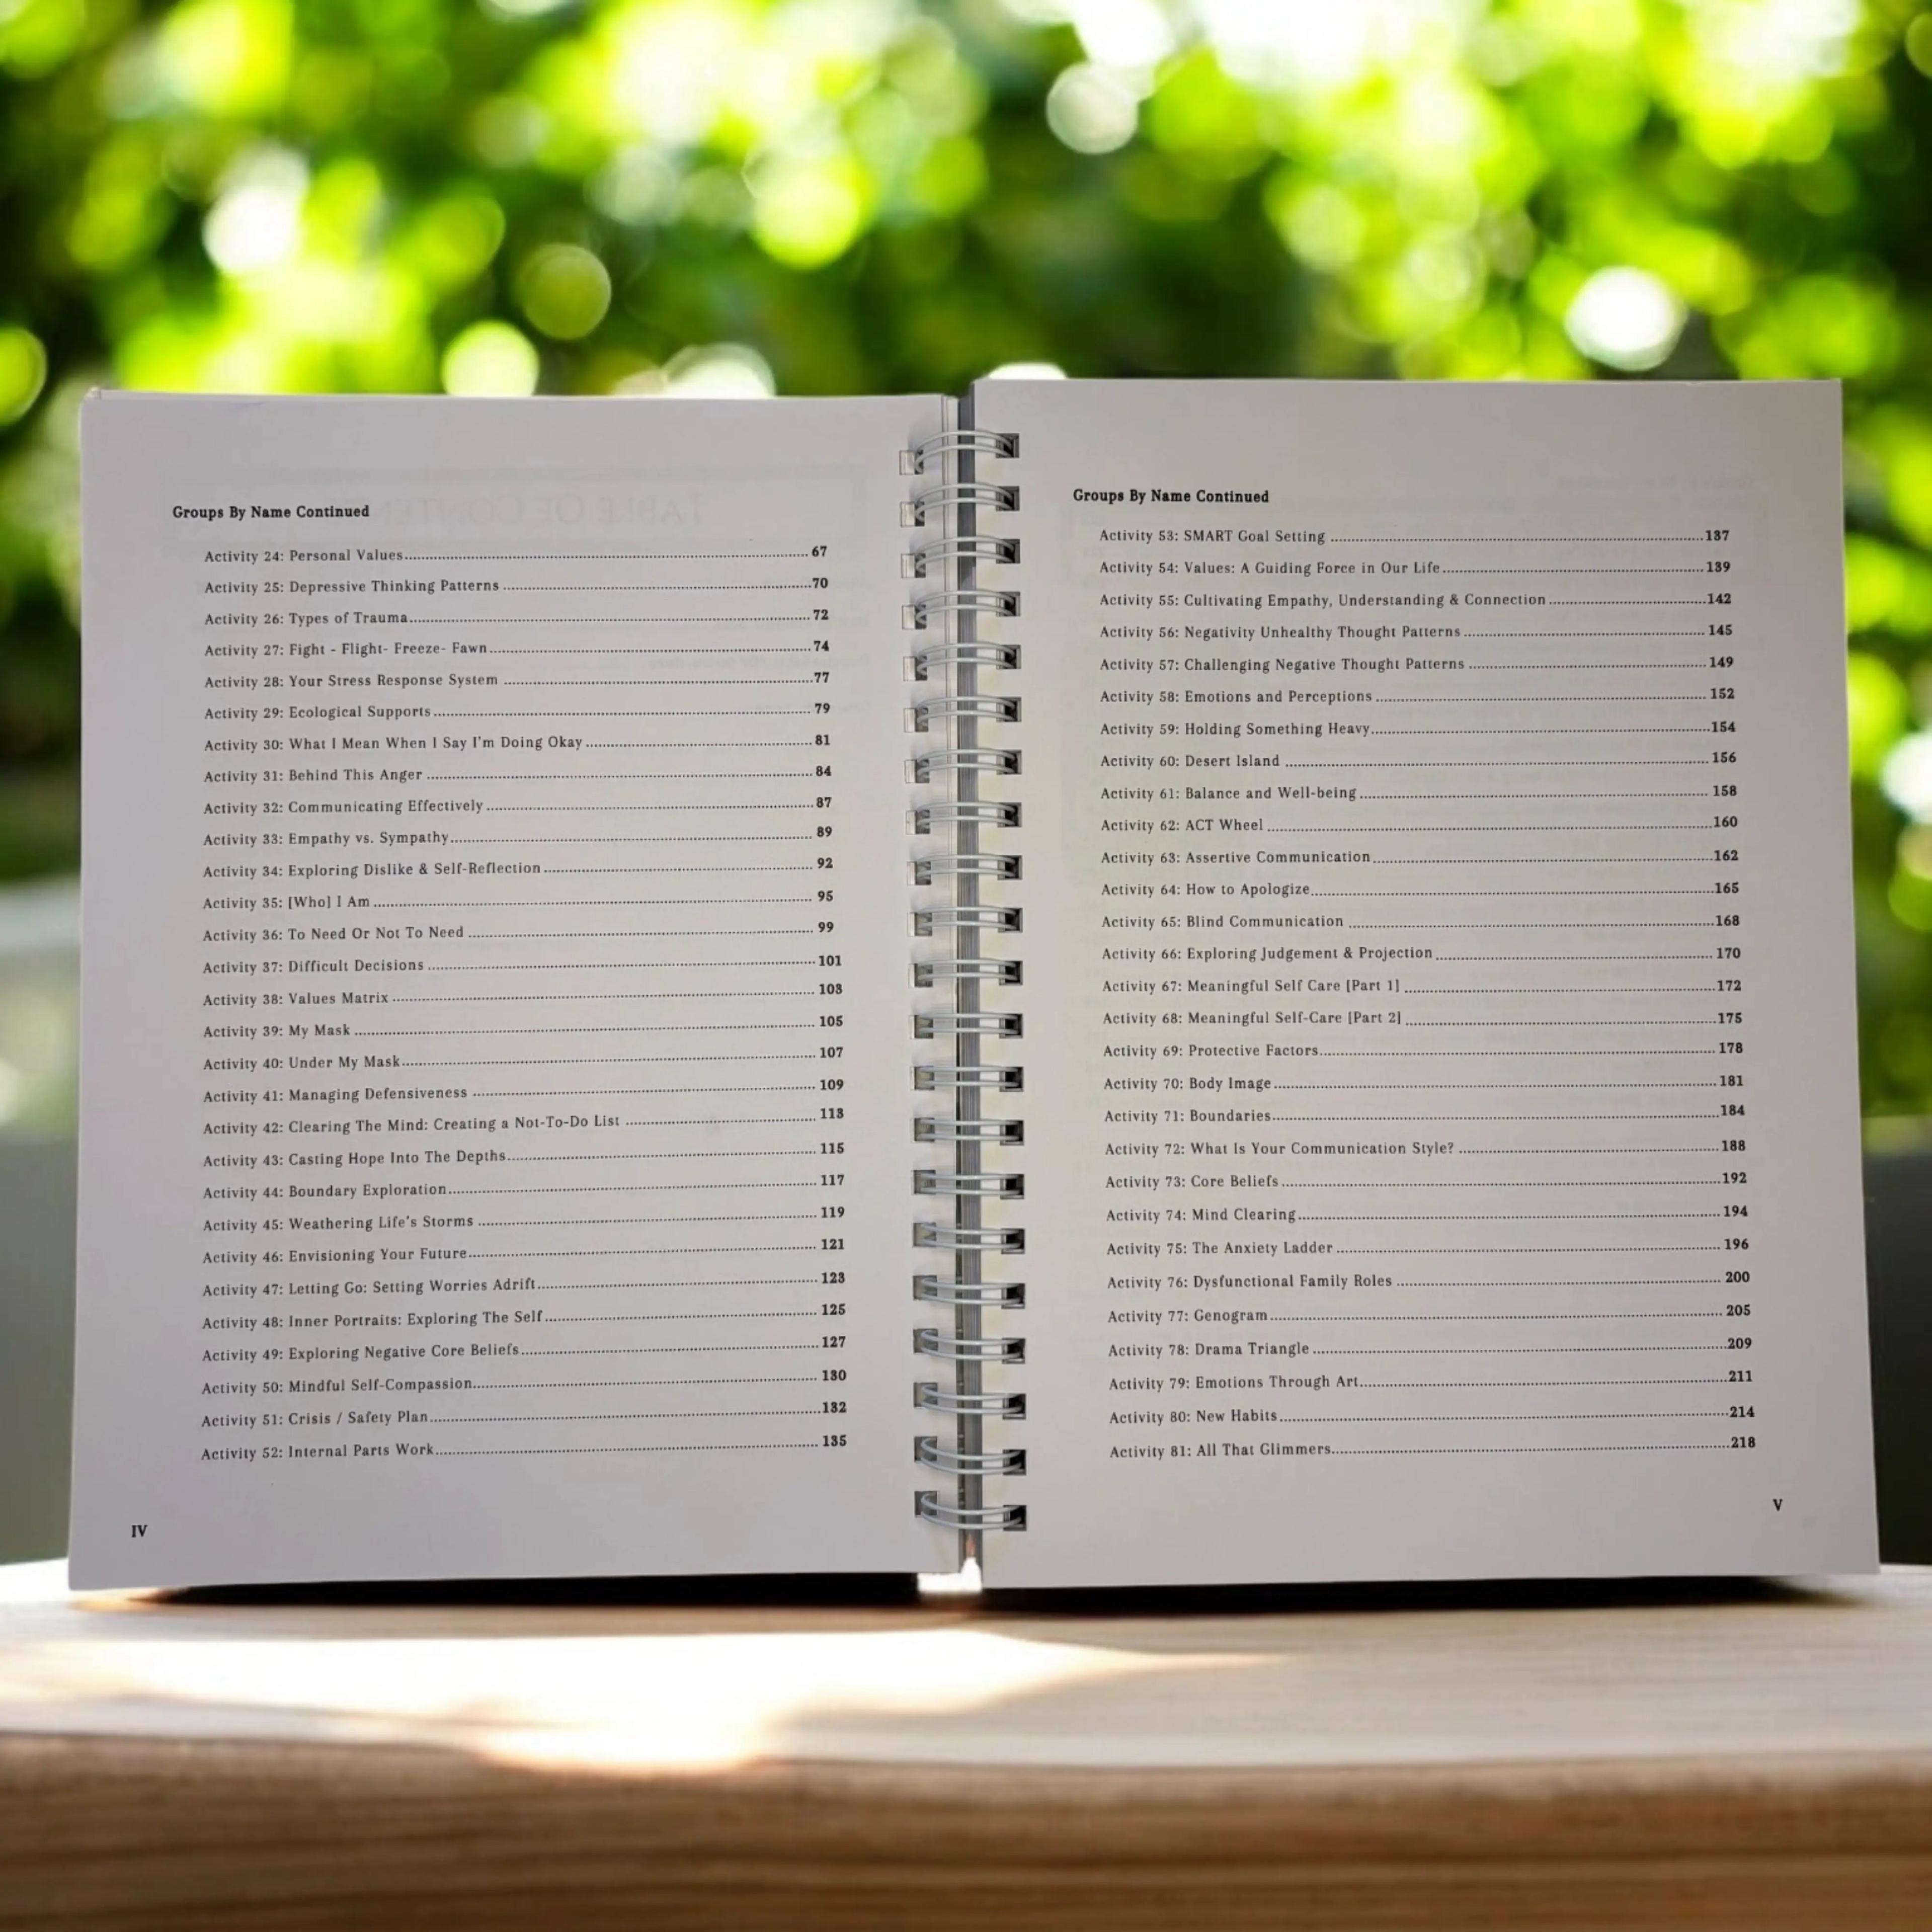 Groups By Name Continued
Activity 24: Personal Values 67
Activity 25: Depressive Thinking Patterns 70
Activity 26: Types of Trauma 72
Activity 27: Fight - Flight- Freeze- Fawn 74
Activity 28: Your Stress Response System 77
Activity 29: Ecological Supports 79
Activity 30: What I Mean When I Say I'm Doing Okay 81
Activity 31: Behind This Anger 84
Activity 32: Communicating Effectively 87
Activity 33: Empathy vs. Sympathy 89
Activity 34: Exploring Dislike & Self-Reflection 92
Activity 35: [Who] I Am 95
Activity 36: To Need Or Not To Need 99
Activity 37: Difficult Decisions 101
Activity 38: Values Matrix 103
Activity 39: My Mask 105
Activity 40: Under My Mask 107
Activity 41: Managing Defensiveness 109
Activity 42: Clearing The Mind: Creating a Not-To-Do List 113
Activity 43: Casting Hope Into The Depths 115
Activity 44: Boundary Exploration 117
Activity 45: Weathering Life's Storms 119
Activity 46: Envisioning Your Future 121
Activity 47: Letting Go: Setting Worries Adrift 123
Activity 48: Inner Portraits: Exploring The Self 125
Activity 49: Exploring Negative Core Beliefs 127
Activity 50: Mindful Self-Compassion 130
Activity 51: Crisis / Safety Plan 132
Activity 52: Internal Parts Work 135
IV
Groups By Name Continued
Activity 53: SMART Goal Setting 137
Activity 54: Values: A Guiding Force in Our Life 139
Activity 55: Cultivating Empathy, Understanding & Connection 142
Activity 56: Negativity Unhealthy Thought Patterns 145
Activity 57: Challenging Negative Thought Patterns 149
Activity 58: Emotions and Perceptions 152
Activity 59: Holding Something Heavy 154
Activity 60: Desert Island 156
Activity 61: Balance and Well-being 158
Activity 62: ACT Wheel 160
Activity 63: Assertive Communication 162
Activity 64: How to Apologize 165
Activity 65: Blind Communication 168
Activity 66: Exploring Judgement & Projection 170
Activity 67: Meaningful Self Care [Part 1] 172
Activity 68: Meaningful Self-Care [Part 2] 175
Activity 69: Protective Factors 178
Activity 70: Body Image 181
Activity 71: Boundaries 184
Activity 72: What Is Your Communication Style? 188
Activity 73: Core Beliefs 192
Activity 74: Mind Clearing 194
Activity 75: The Anxiety Ladder 196
Activity 76: Dysfunctional Family Roles 200
Activity 77: Genogram 205
Activity 78: Drama Triangle 209
Activity 79: Emotions Through Art 211
Activity 80: New Habits 214
Activity 81: All That Glimmers 218
V